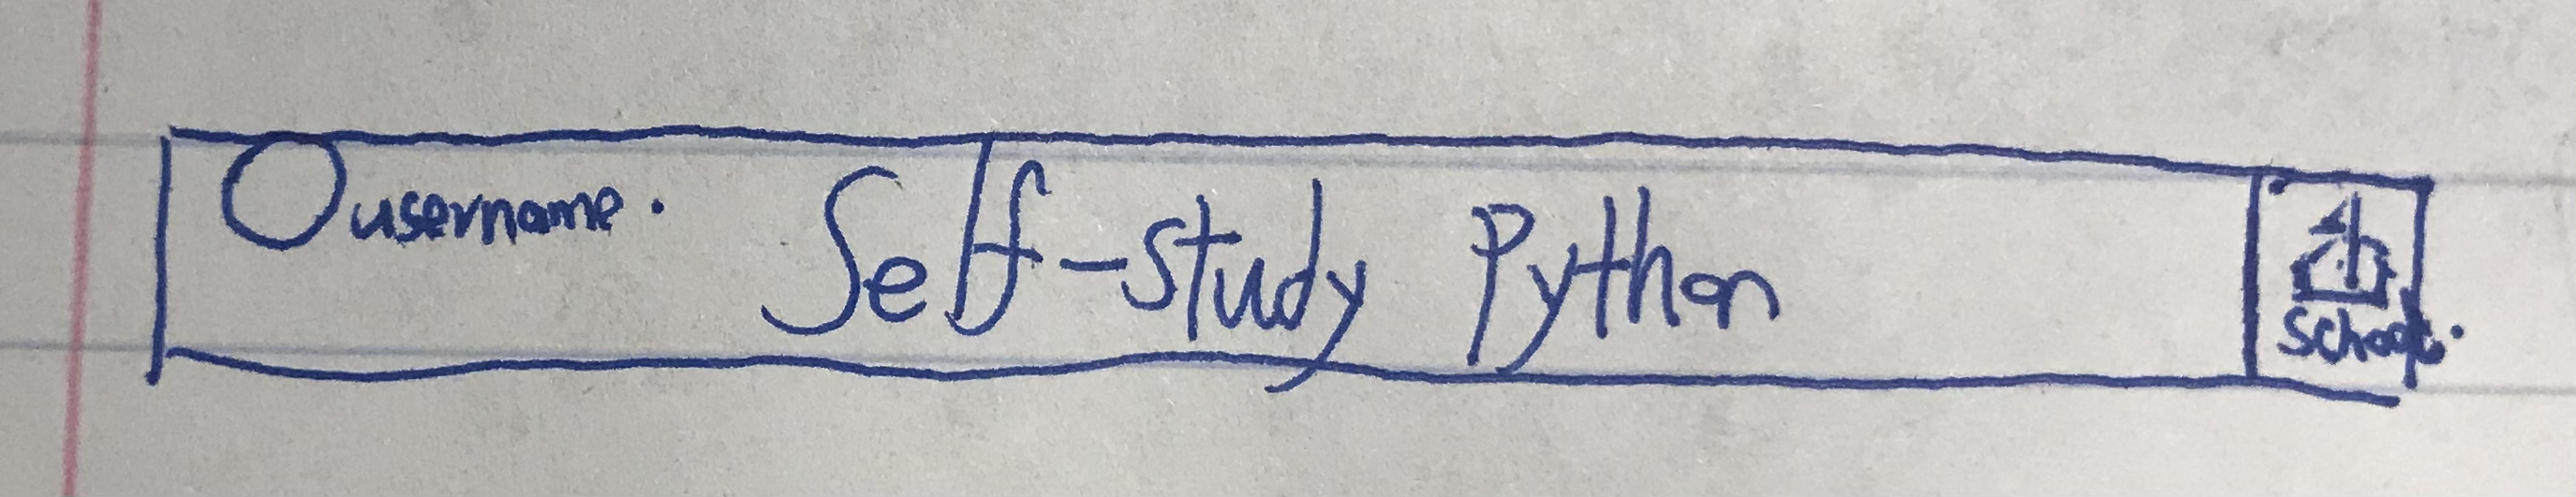 username.
Self-study Python
School.